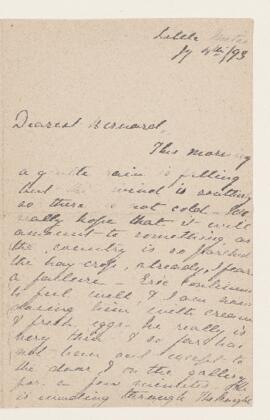 Little
Jy 4th/93
Dearest Bernard,
This morning
a gentle rain is falling
but the wind is southerly
so there is not cold - We
really hope that it will
amount to something, as
the country is so parched
the hay crop, already, I fear
a failure - Eric continues
to feel well, & I am now
him with cream
& fresh eggs - he really is
very thin & so far has
not been out except to
the door & on the gallery
for a few minutes - He
is through